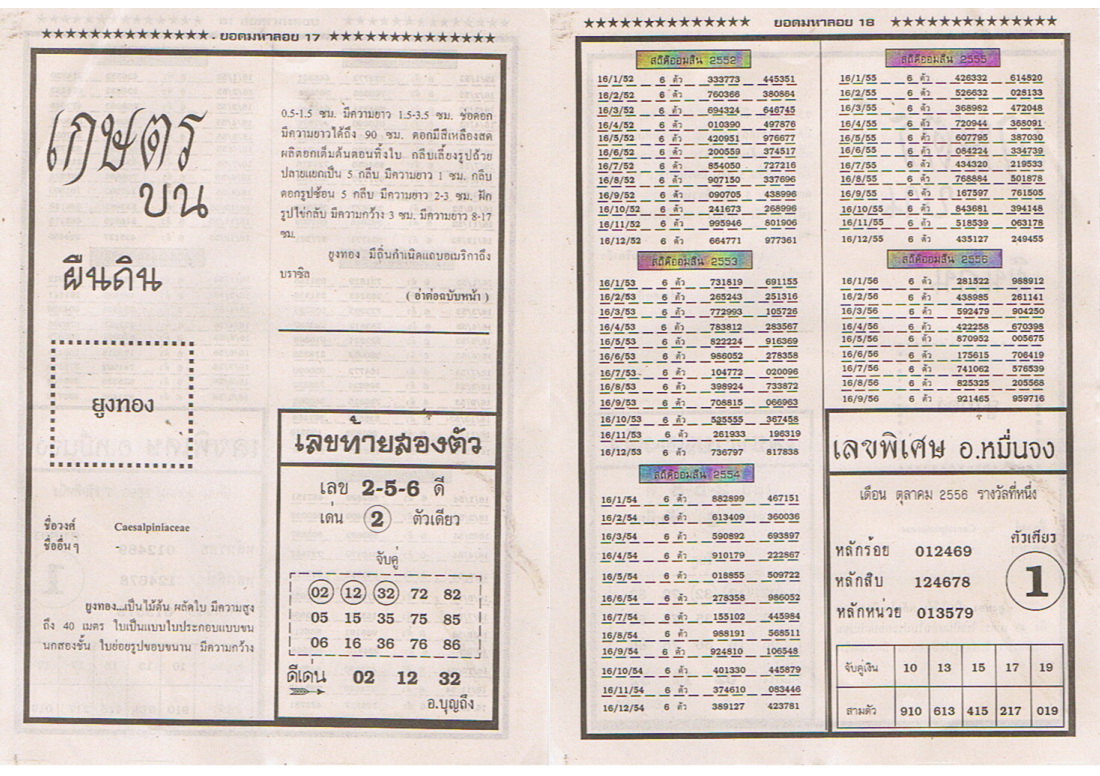 ยอดมหาลอย 17
เกษตร
บน
ผืนดิน
ยูงทอง
ชื่อวงศ์ Caesalpiniaceae
ชื่ออื่น ๆ
ยูงทอง...เป็นไม้ต้น ผลัดใบ มีความสูง
ถึง 40 เมตร ใบเป็นแบบใบประกอบแบบขน
นกสองชั้น ใบย่อยรูปขอบขนาน มีความกว้าง
0.5-1.5 ซม. มีความยาว 1.5-3.5 ซม. ช่อดอก
มีความยาวได้ถึง 90 ซม. ดอกมีสีเหลืองสด
ผลิดอกเต็มต้นตอนทิ้งใบ กลีบเลี้ยงรูปถ้วย
ปลายแยกเป็น 5 กลีบ มีความยาว 1 ซม. กลีบ
ดอกรูปช้อน 5 กลีบ มีความยาว 2-3 ซม. ฝัก
รูปไข่กลับ มีความกว้าง 3 ซม. มีความยาว 8-17
ซม.
ยูงทอง มีถิ่นกำเนิดแถบอเมริกาถึง
บราซิล
( อ่าต่อฉบับหน้า )
เลขท้ายสองตัว
เลข 2-5-6 ดี
เด่น 2 ตัวเดียว
จับคู่
02 12 32 72 82
05 15 35 75 85
06 16 36 76 86
ดีเด่น 02 12 32
อ.บุญถึง
ยอดมหาลอย 18
สถิติออมสิน 2552
16/1/52 6 ตัว 333773 445351
16/2/52 6 ตัว 760366 380864
16/3/52 6 ตัว 694324 646745
16/4/52 6 ตัว 010390 497876
16/5/52 6 ตัว 420951 976677
16/6/52 6 ตัว 200559 374517
16/7/52 6 ตัว 854050 727216
16/8/52 6 ตัว 907150 337696
16/9/52 6 ตัว 090705 438996
16/10/52 6 ตัว 241673 268996
16/11/52 6 ตัว 995946 801906
16/12/52 6 ตัว 664771 977361
สถิติออมสิน 2553
16/1/53 6 ตัว 731819 691155
16/2/53 6 ตัว 265243 251316
16/3/53 6 ตัว 772993 105726
16/4/53 6 ตัว 783812 283567
16/5/53 6 ตัว 822224 916369
16/6/53 6 ตัว 986052 278358
16/7/53 6 ตัว 104772 020096
16/8/53 6 ตัว 398924 733872
16/9/53 6 ตัว 708815 066963
16/10/53 6 ตัว 535555 367458
16/11/53 6 ตัว 261933 196319
16/12/53 6 ตัว 736797 817838
สถิติออมสิน 2554
16/1/54 6 ตัว 882899 467151
16/2/54 6 ตัว 613409 360036
16/3/54 6 ตัว 590892 693897
16/4/54 6 ตัว 910179 222867
16/5/54 6 ตัว 018855 509722
16/6/54 6 ตัว 278358 986052
16/7/54 6 ตัว 155102 445984
16/8/54 6 ตัว 988191 568511
16/9/54 6 ตัว 924810 106548
16/10/54 6 ตัว 401330 445879
16/11/54 6 ตัว 374610 083446
16/12/54 6 ตัว 389127 423781
สถิติออมสิน 2555
16/1/55 6 ตัว 426332 614820
16/2/55 6 ตัว 526632 028133
16/3/55 6 ตัว 368982 472048
16/4/55 6 ตัว 720944 368091
16/5/55 6 ตัว 607795 387030
16/6/55 6 ตัว 084224 334739
16/7/55 6 ตัว 434320 219533
16/8/55 6 ตัว 768884 501878
16/9/55 6 ตัว 167597 761505
16/10/55 6 ตัว 843681 394148
16/11/55 6 ตัว 518539 063178
16/12/55 6 ตัว 435127 249455
สถิติออมสิน 2556
16/1/56 6 ตัว 281522 988912
16/2/56 6 ตัว 438985 261141
16/3/56 6 ตัว 592479 904250
16/4/56 6 ตัว 422258 670398
16/5/56 6 ตัว 870952 005675
16/6/56 6 ตัว 175615 706419
16/7/56 6 ตัว 741062 576539
16/8/56 6 ตัว 825325 205568
16/9/56 6 ตัว 921465 959716
เลขพิเศษ อ.หมื่นจง
เดือน ตุลาคม 2556 รางวัลที่หนึ่ง
ตัวเดียว
หลักร้อย 012469
หลักสิบ 124678
หลักหน่วย 013579
1
จับคู่เงิน 10 13 15 17 19
สามตัว 910 613 415 217 019